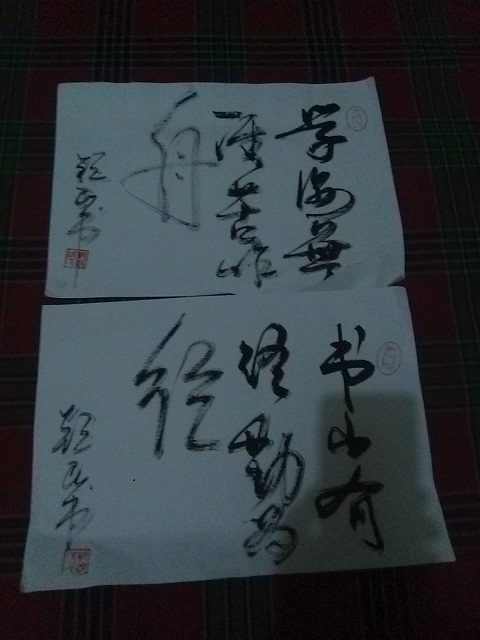 学海無
涯苦作
舟
书山有
路勤为
径